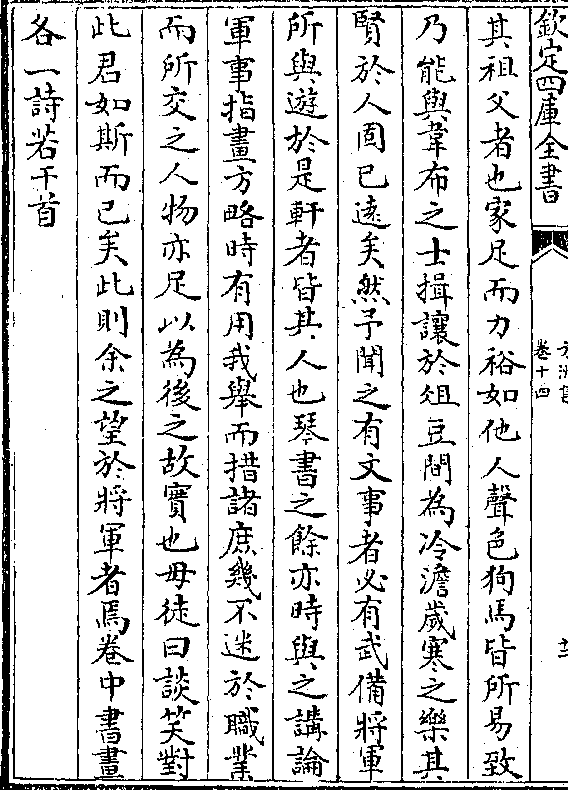 欽定四庫全書
卷十四
其祖父者也家足而力裕如他人聲色狗馬皆所易致
乃能與韋布之士揖讓於俎豆間為冷澹歲寒之樂其
賢於人固已遠矣然予聞之有文事者必有武備將軍
所與遊於是軒者皆其人也琴書之餘亦時與之講論
軍事指畫方略時有用我舉而措諸庶幾不迷於職業
而所交之人物亦足以為後之故實也毋徒曰談笑對
此君如斯而已矣此則余之望於將軍者焉卷中書畫
各一詩若干首